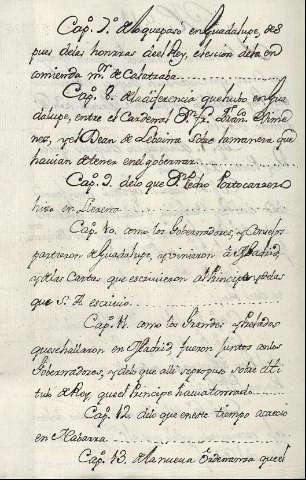 Cap.º 7.º de lo que pasó en Guadalupe, des
pues delas honrras deel Rey, elección dela en
comienda m.ʳ de Calatraba
Cap.º 8. de la diferencia que hubo en Gua
dalupe, entre el Cardenal D.ⁿ fr. Fran.co Xime
nez, y el Dean de Lobaina sobre la manera que
havian de tener en el gobernar
Cap.º 9. delo que D.ⁿ Pedro Portocarrero
hizo en Llerena
Cap.º 10. como los Gobernadores, y Consejos
partieron de Guadalupe, y vinieron à Madrid,
y delas Cartas que escrivieron al Principe y delas
que S. A. escrivio
Cap.º 11. como los Grandes y Prelados
que se hallaron en Madrid, fueron juntos con los
Gobernadores, y delo que alli se propuso sobre el ti
tulo de Rey, que el Principe havia tomado
Cap.º 12. delo que en este tiempo acaecio
en Nabarra
Cap.º 13. de la nueva Ordenanza que el